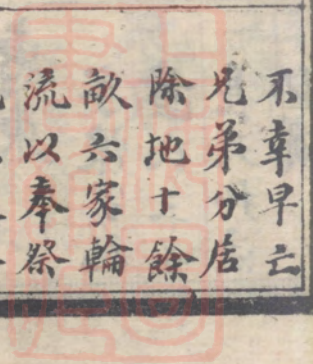 不幸早亡
兄弟分居
除地十餘
畝六家輪
流以奉祭